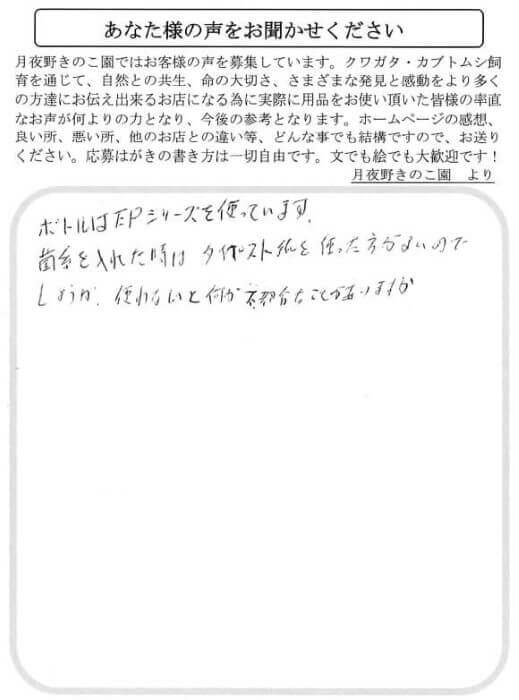 あなた様の声をお聞かせください
月夜野きのこ園ではお客様の声を募集しています。クワガタ・カブトムシ飼
育を通じて、自然との共生、命の大切さ、さまざまな発見と感動をより多く
の方達にお伝え出来るお店になる為に実際に用品をお使い頂いた皆様の率直
なお声が何よりの力となり、今後の参考となります。ホームページの感想、
良い所、悪い所、他のお店との違い等、どんな事でも結構ですので、お送り
ください。応募はがきの書き方は一切自由です。文でも絵でも大歓迎です！
月夜野きのこ園　より
ボトルはEPシリーズを使っています。
菌糸を入れた時は タイベスト紙を使った方がよいので
しょうか、使わないと何か不都合なことがありますか